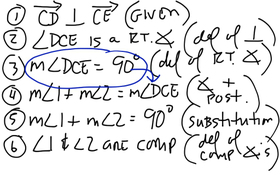 ① CD ⊥ CE (GIVEN)
② ∠DCE IS A RT. ∡ (def of ⊥)
③ m∠DCE = 90° (def of RT. ∡)
④ m∠1 + m∠2 = m∠DCE (∡ + POST.)
⑤ m∠1 + m∠2 = 90° (substitution)
⑥ ∠1 & ∠2 ARE COMP (def of COMP ∡'s)